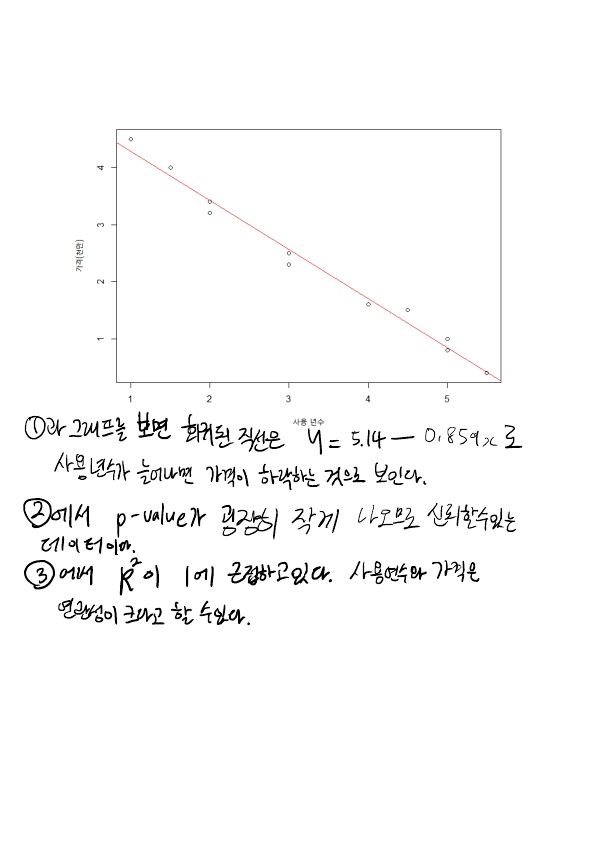 가격(천만)
4
3
2
1
1 2 3 4 5
사용 년수
①과 그래프를 보면 회귀된 직선은 y = 5.14 — 0.859x로
사용년수가 늘어나면 가격이 하락하는 것으로 보인다.
②에서 p-value가 굉장히 작게 나오므로 신뢰할수있는
데이터이다.
③에서 R²이 1에 근접하고있다. 사용연수와 가격은
연관성이 크다고 할 수있다.